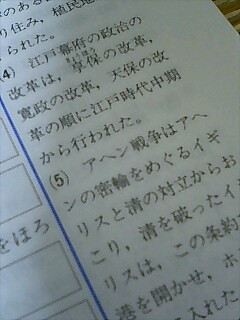 り住み，植民地
られた。
(4) 江戸幕府の政治の
改革は，享保の改革，
寛政の改革，天保の改
革の順に江戸時代中期
から行われた。
(5) アヘン戦争はアヘ
ンの密輸をめぐるイギ
リスと清の対立からお
こり，清を破ったイ
リスは，この条約
港を開かせ，ホ
に入れた
をほろ